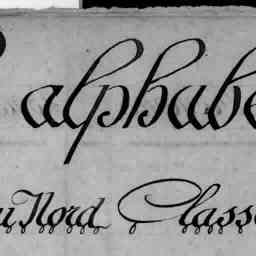 alphabe
u Nord Class